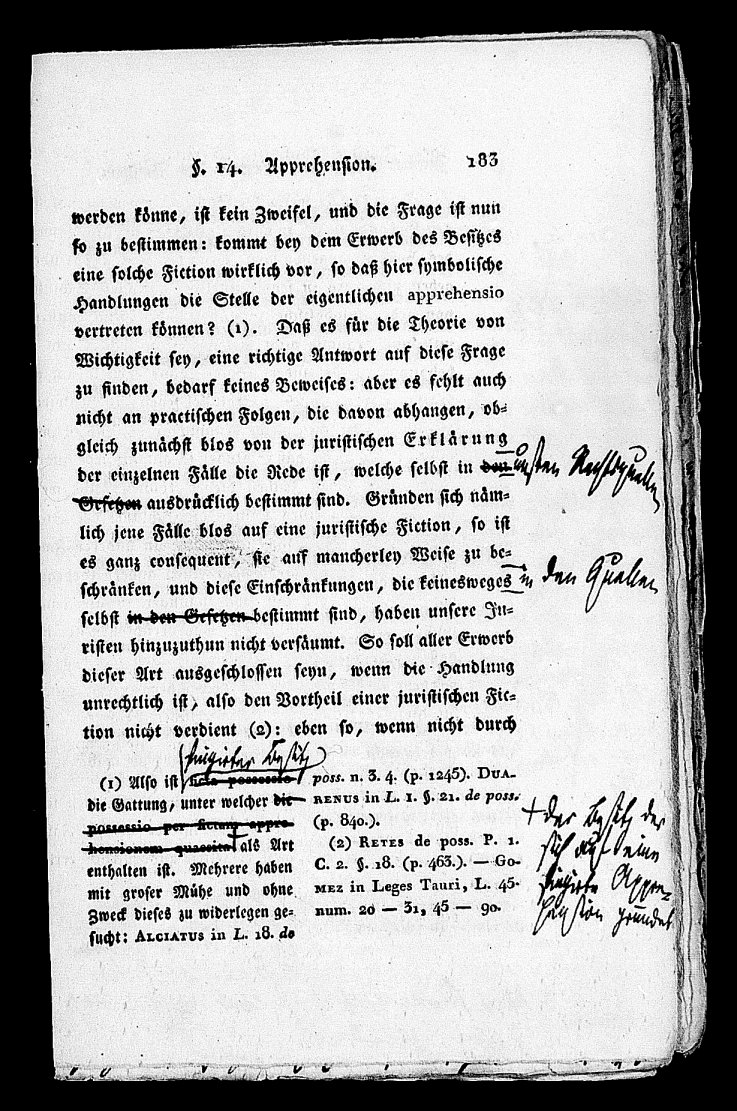 §. 14. Apprehension. 183
werden könne, ist kein Zweifel, und die Frage ist nun
so zu bestimmen: kommt bey dem Erwerb des Besitzes
eine solche Fiction wirklich vor, so daß hier symbolische
Handlungen die Stelle der eigentlichen apprehensio
vertreten können? (1). Daß es für die Theorie von
Wichtigkeit sey, eine richtige Antwort auf diese Frage
zu finden, bedarf keines Beweises: aber es fehlt auch
nicht an practischen Folgen, die davon abhangen, ob-
gleich zunächst blos von der juristischen Erklärung
der einzelnen Fälle die Rede ist, welche selbst in den Rechtsquellen
Gesetzen ausdrücklich bestimmt sind. Gründen sich näm-
lich jene Fälle blos auf eine juristische Fiction, so ist
es ganz consequent, sie auf mancherley Weise zu be-
schränken, und diese Einschränkungen, die keinesweges in den Quellen
selbst in den Gesetzen bestimmt sind, haben unsere Ju-
risten hinzuzuthun nicht versäumt. So soll aller Erwerb
dieser Art ausgeschlossen seyn, wenn die Handlung
unrechtlich ist, also den Vortheil einer juristischen Fic-
tion nicht verdient (2): eben so, wenn nicht durch
fingirter Besitz
(1) Also ist ficta possessio
die Gattung, unter welcher die
possessio per fictam appre-
hensionem quaesita als Art
enthalten ist. Mehrere haben
mit groser Mühe und ohne
Zweck dieses zu widerlegen ge-
sucht: ALCIATUS in L. 18. de
poss. n. 3. 4. (p. 1245). DUA-
RENUS in L. 1. §. 21. de poss.
(p. 840.).
(2) RETES de poss. P. 1.
C. 2. §. 18. (p. 463.). — GO-
MEZ in Leges Tauri, L. 45.
num. 20 — 31, 45 — 90.
+ der Besitz der
sich auf eine
fingirte Appre-
hension gründet